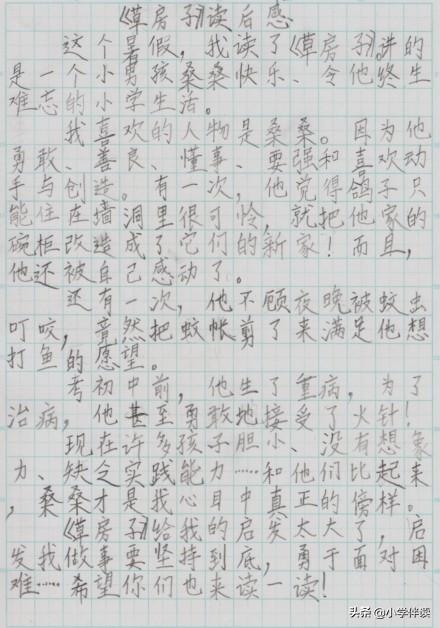 《草房子》读后感
这个暑假，我读了《草房子》讲的
是一个小男孩桑桑快乐、令他终生
难忘的小学生活。
我喜欢的人物是桑桑。因为他
勇敢、善良、懂事、要强和喜欢动
手与创造。有一次，他觉得鸽子只
能住在墙洞里很可怜，就把他家的
碗柜改造成了它们的新家！而且，
他还被自己感动了。
还有一次，他不顾夜晚被蚊虫
叮咬，竟然把蚊帐剪了来满足他想
打鱼的愿望。
考初中前，他生了重病，为了
治病，他甚至勇敢地接受了火针！
现在许多孩子胆小、没有想象
力、缺令实践能力……和他们比起来
，桑桑才是我心目中真正的傍样。
《草房子》给我的启发太大了，启
发我做事要坚持到底，勇于面对困
难……希望你们也来读一读！
头条 @小学伴读